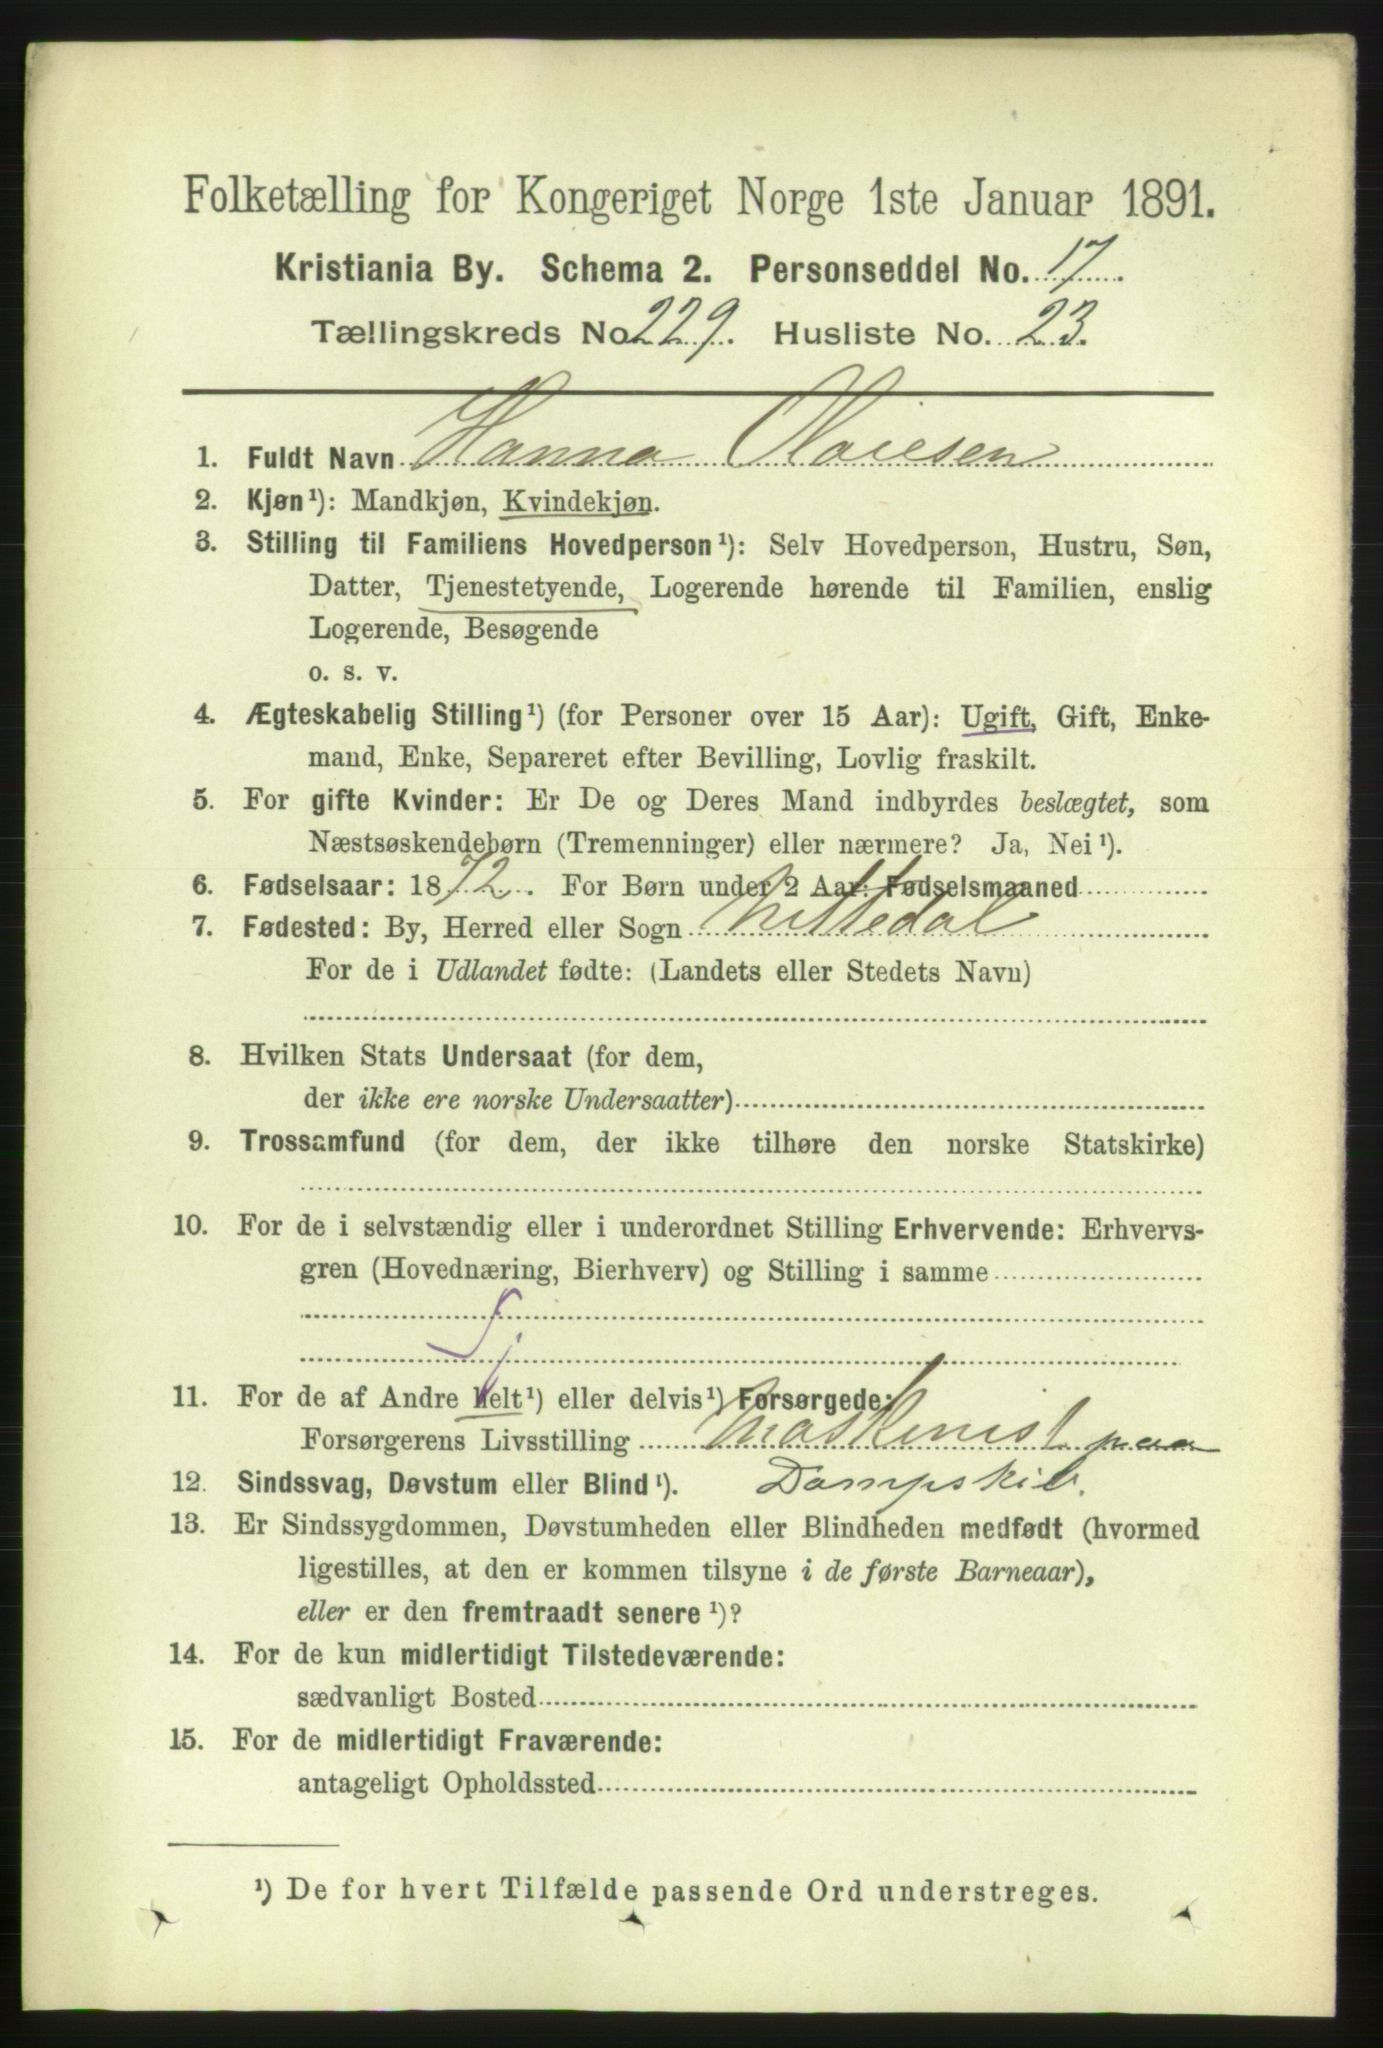 Folketælling for Kongeriget Norge 1ste Januar 1891.
Kristiania By. Schema 2. Personseddel No. 17.
Tællingskreds No. 229. Husliste No. 23.
1. Fuldt Navn Hanna Olaiesen
2. Kjøn¹): Mandkjøn, Kvindekjøn.
3. Stilling til Familiens Hovedperson¹): Selv Hovedperson, Hustru, Søn,
Datter, Tjenestetyende, Logerende hørende til Familien, enslig
Logerende, Besøgende
o. s. v.
4. Ægteskabelig Stilling¹) (for Personer over 15 Aar): Ugift, Gift, Enke-
mand, Enke, Separeret efter Bevilling, Lovlig fraskilt.
5. For gifte Kvinder: Er De og Deres Mand indbyrdes beslægtet, som
Næstsøskendebørn (Tremenninger) eller nærmere? Ja, Nei¹).
6. Fødselsaar: 1872. For Børn under 2 Aar: Fødselsmaaned
7. Fødested: By, Herred eller Sogn Nittedal
For de i Udlandet fødte: (Landets eller Stedets Navn)
8. Hvilken Stats Undersaat (for dem,
der ikke ere norske Undersaatter)
9. Trossamfund (for dem, der ikke tilhøre den norske Statskirke)
10. For de i selvstændig eller i underordnet Stilling Erhvervende: Erhvervs-
gren (Hovednæring, Bierhverv) og Stilling i samme
11. For de af Andre helt¹) eller delvis¹) Forsørgede:
Forsørgerens Livsstilling Maskinist paa
12. Sindssvag, Døvstum eller Blind¹). Dampskib.
13. Er Sindssygdommen, Døvstumheden eller Blindheden medfødt (hvormed
ligestilles, at den er kommen tilsyne i de første Barneaar),
eller er den fremtraadt senere¹)?
14. For de kun midlertidigt Tilstedeværende:
sædvanligt Bosted
15. For de midlertidigt Fraværende:
antageligt Opholdssted
¹) De for hvert Tilfælde passende Ord understreges.